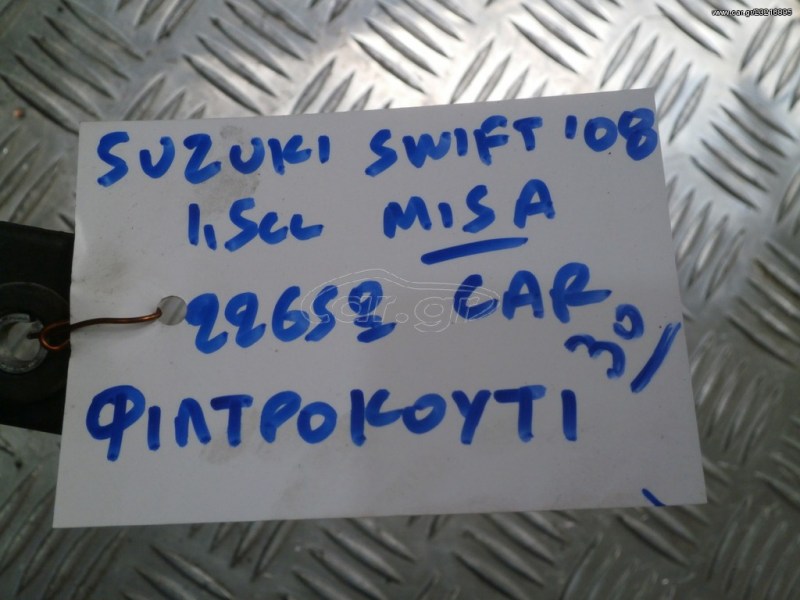 www.car.gr/23216895
SUZUKI SWIFT '08
1,5cc MISA
22652 CAR
30/
ΦΙΛΤΡΟΚΟΥΤΙ
car.gr